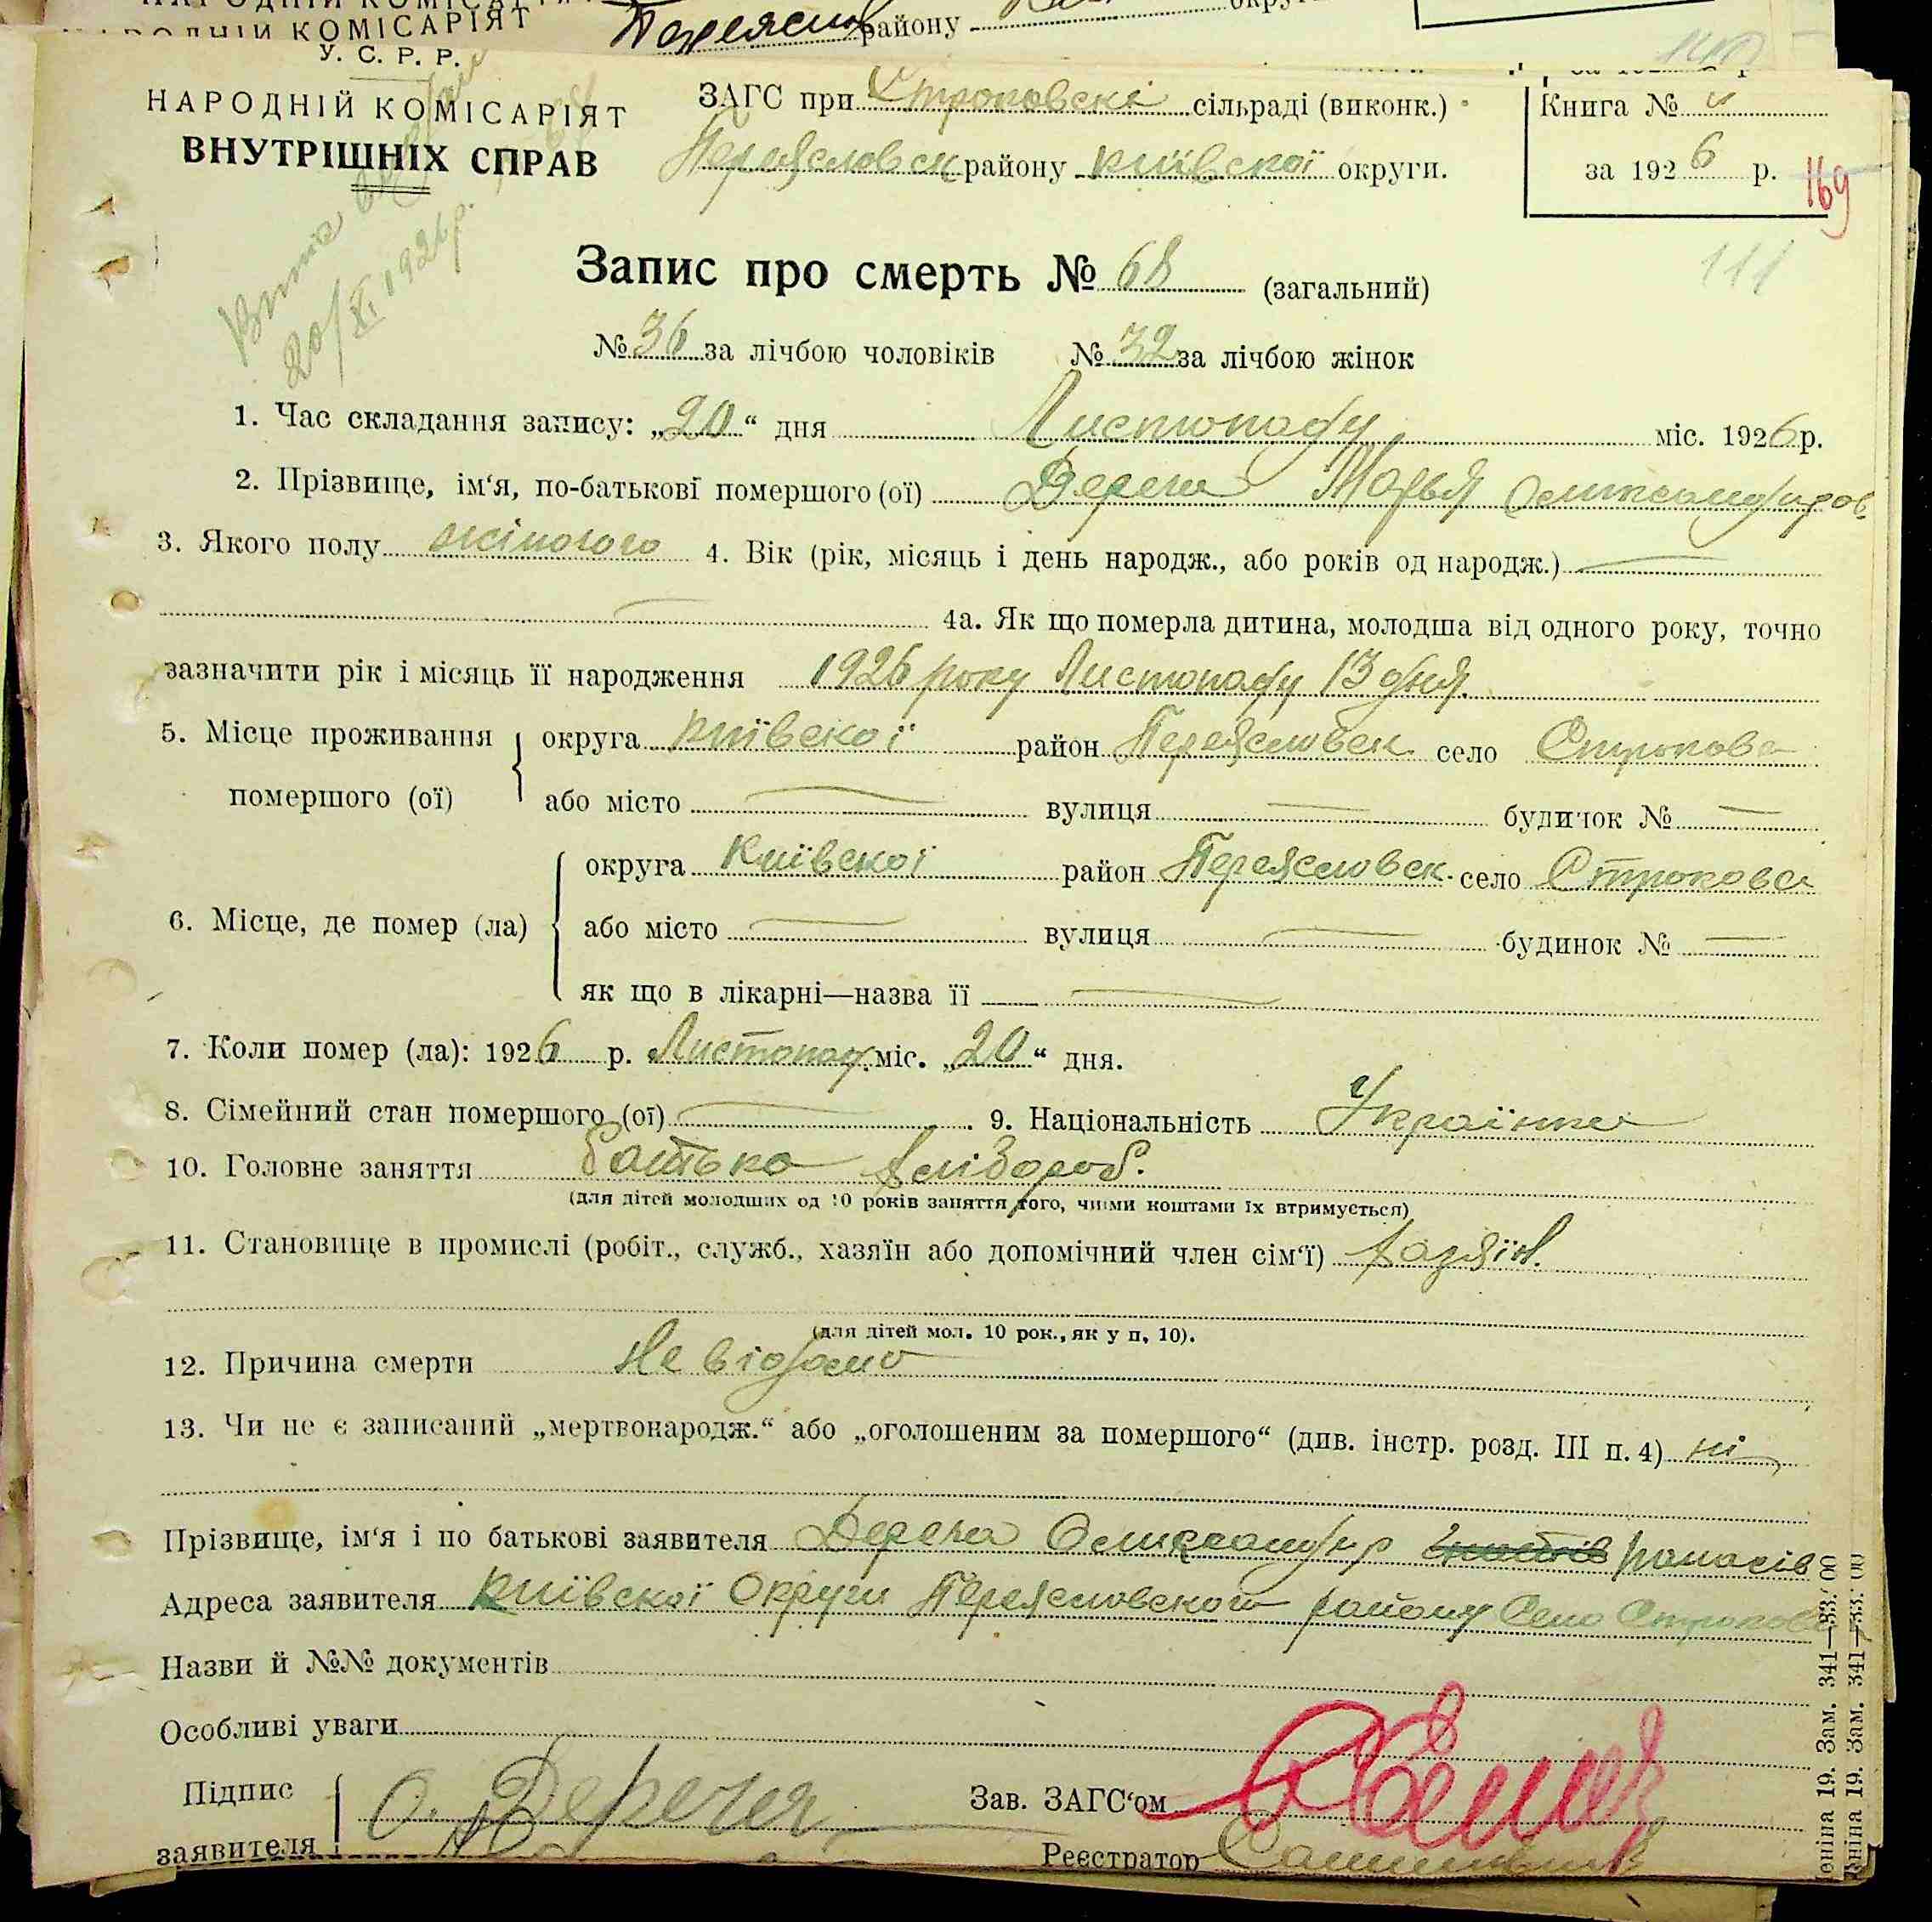 НАРОДНІЙ КОМІСАРІЯТ
району
У. С. Р. Р.
НАРОДНІЙ КОМІСАРІЯТ
ВНУТРІШНІХ СПРАВ
ЗАГС при Строковскі сільраді (виконк.)
Переясловск району Київскої округи.
Книга №
за 1926 р.
169
111
20/XI 1926 р.
Запис про смерть № 68 (загальний)
№ 36 за лічбою чоловіків № 32 за лічбою жінок
1. Час складання запису: „20“ дня Листопаду міс. 1926 р.
2. Прізвище, ім‘я, по-батькові помершого (ої) Дереча Марья Олександров.
3. Якого полу жіночого 4. Вік (рік, місяць і день народж., або років од народж.) —
— 4а. Як що померла дитина, молодша від одного року, точно
зазначити рік і місяць її народження 1926 року Листопаду 13 дня.
5. Місце проживання помершого (ої) округа Київскої район Переясловск село Строкова
або місто — вулиця — будинок № —
6. Місце, де помер (ла) округа Київскої район Переясловск. село Строкова
або місто — вулиця — будинок № —
як що в лікарні—назва її —
7. Коли помер (ла): 1926 р. Листопад. міс. „20“ дня.
8. Сімейний стан помершого (ої) — . 9. Національність Українка
10. Головне заняття батько хлібороб.
(для дітей молодших од 10 років заняття того, чиїми коштами їх втримується)
11. Становище в промислі (робіт., служб., хазяїн або допомічний член сім‘ї) хазяїн.
(для дітей мол. 10 рок., як у п, 10).
12. Причина смерти Не відомо
13. Чи не є записаний „мертвонародж.“ або „оголошеним за помершого“ (див. інстр. розд. III п. 4) ні
Прізвище, ім‘я і по батькові заявителя Дереча Олександир Панасів
Адреса заявителя Київскої Округи Переясловского району Село Строкова
Назви й №№ документів
Особливі уваги
Підпис заявителя О. Дереча
Зав. ЗАГС‘ом
Реєстратор
19. Зам. 341—33.00
19. Зам. 341—33.00